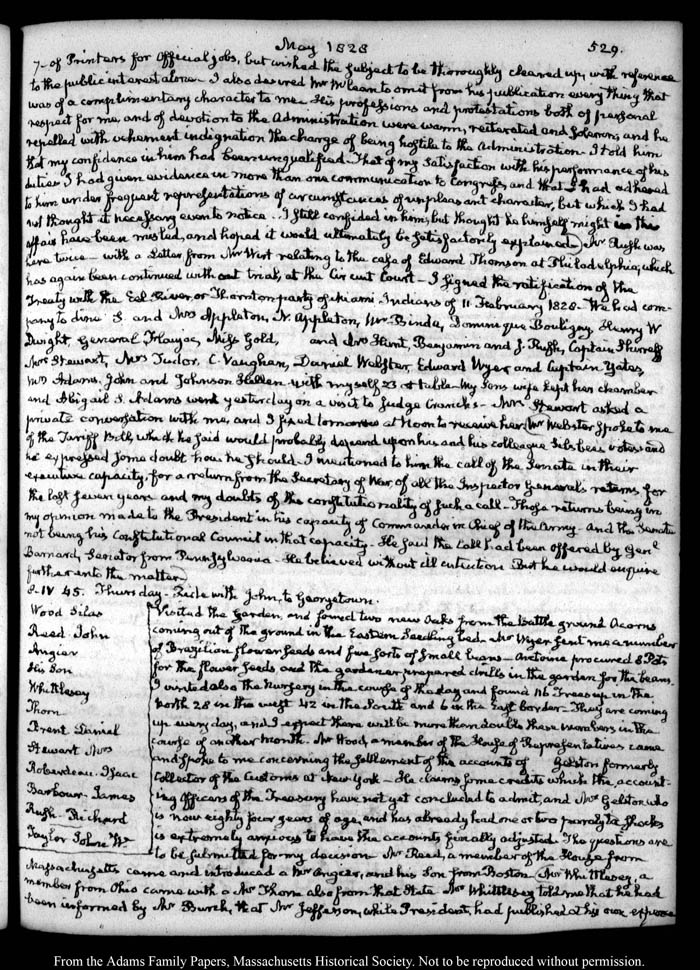 May 1828 529.
7. of Printers for Official jobs, but wished the subject to be thoroughly cleared up, with reference
to the public interest alone. I also desired Mr McLean to omit from his publication every thing that
was of a complimentary character to me. His professions and protestations both of personal
respect for me, and of devotion to the Administration were warm, reiterated and solemn; and he
repelled with vehement indignation the charge of being hostile to the Administration. I told him
that my confidence in him had been unqualified. That of my satisfaction with his performance of his
duties I had given evidence in more than one communication to Congress, and that I had adhered
to him under frequent representations of circumstances of unpleasant character, but which I had
not thought it necessary even to notice. I still confided in him, but thought he himself might in this
affair have been misled, and hoped it would ultimately be satisfactorily explained. Mr Rush was
here twice with a Letter from Mr Wirt relating to the case of Edward Thomson at Philadelphia, which
has again been continued without trial, at the Circuit Court. I signed the ratification of the
Treaty with the Eel River, or Thorntown party of Miami Indians of 11 February 1828. We had com-
pany to dine S. and Mrs Appleton, N. Appleton, Mr Binda, Dominique Bouligny, Henry W
Dwight, General Miss Gold, and Mrs Hunt, Benjamin and J. Rush, Captain
Mrs Stewart, Mrs Tudor, C. Vaughan, Daniel Webster, Edward Wyer and Captain Yates,
Mrs Adams, John and Johnson Hellen with myself 23 at table. My Sons wife kept her chamber
and Abigail S. Adams went yesterday on a visit to Judge Cranch's. Mrs Stewart asked a
private conversation with me, and I fixed tomorrow at Noon to receive her. Mr Webster spoke to me
of the Tariff Bill, which he said would probably depend upon his and his colleague Silsbee's votes and
he expressed some doubt how he should. I mentioned to him the call of the Senate in their
executive capacity, for a return from the Secretary of War of all the Inspector General's returns for
the last seven years and my doubts of the constitutionality of such a call. Those returns being in
my opinion made to the President in his capacity of Commander in Chief of the Army. And the Senate
not being his Constitutional Council in that capacity. He said the Call had been offered by Genl
Barnard, Senator from Pennsylvania. He believed without ill intention. But he would enquire
further into the matter.
8. IV 45. Thursday. Ride with John, to Georgetown.
Wood Silas
Reed. John
Angier
His Son
Whittlesey
Thom
Brent Daniel
Stewart Mrs
Roberdeau. Isaac
Barbour. James
Rush. Richard
Taylor John W.
Visited the Garden, and found two new Oaks from the battle ground Acorns
coming out of the ground in the Eastern Seedling bed. Mr Wyer sent me a number
of Brazilian flower seeds and five sorts of small beans. Antoine procured 8 Pots
for the flower seeds and the gardener prepared drills in the garden for the beans.
I visited also the Nursery in the course of the day and found 116 Trees up in the
North 28 in the west 42 in the South and 6 in the East border. They are coming
up every day, and I expect there will be more than double these numbers in the
course of another month. Mr Wood, a member of the House of Representatives came
and spoke to me concerning the settlement of the accounts of Gelston formerly
Collector of the Customs at New York. He claims some credits which the account-
ing Officers of the Treasury have not yet concluded to admit, and Mr Gelston who
is now eighty four years of age, and has already had one or two paralytic shocks
is extremely anxious to have the accounts finally adjusted. The questions are
to be submitted for my decision. Mr Reed, a member of the House from
Massachusetts came and introduced a Mr Angier, and his Son from Boston. Mr Whittlesey, a
member from Ohio came with a Mr Thom also from that State. Mr Whittlesey told me that he had
been informed by Mr Burch, that Mr Jefferson, while President, had published at his own expense
From the Adams Family Papers, Massachusetts Historical Society. Not to be reproduced without permission.